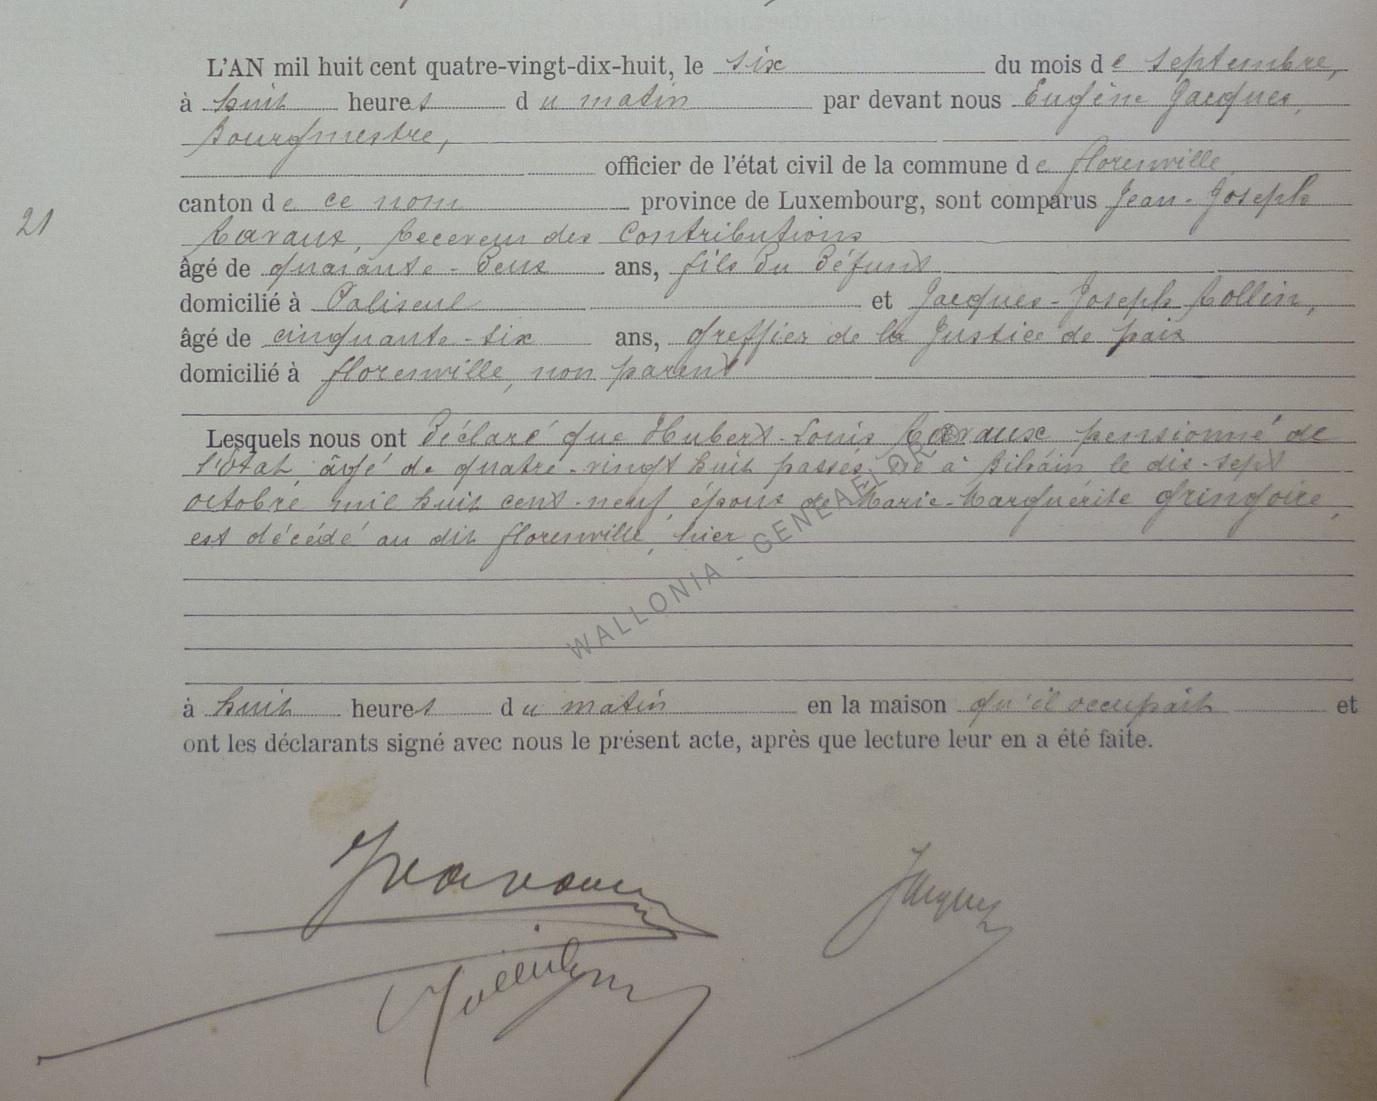 L'AN mil huit cent quatre-vingt-dix-huit, le six du mois de septembre,
à huit heures du matin par devant nous Eugène Jacques,
Bourgmestre,
officier de l'état civil de la commune de florenville
canton de ce nom province de Luxembourg, sont comparus Jean-Joseph
21
Ravaux, Receveur des Contributions
âgé de quarante-deux ans, fils du défunt
domicilié à Paliseul et Jacques-Joseph Collin,
âgé de cinquante-six ans, greffier de la Justice de paix
domicilié à florenville, non parent
Lesquels nous ont déclaré que Hubert-Louis Ravaux pensionné de
l'Etat, âgé de quatre-vingt huit passés, né à Bihain le dix-sept
octobre mil huit cent-neuf, époux de Marie-Marguérite Gringoire,
est décédé au dit florenville, hier
WALLONIA - GENEALOR
à huit heures du matin en la maison qu'il occupait et
ont les déclarants signé avec nous le présent acte, après que lecture leur en a été faite.
Jacques